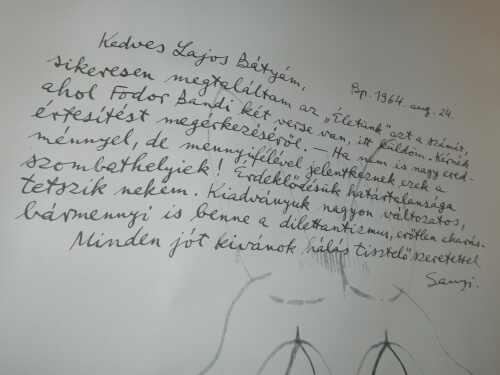 Kedves Lajos Bátyám,
Bp. 1964. aug. 24.
sikeresen megtaláltam az „Életünk" azt a számát,
ahol Fodor Bandi két verse van, itt küldöm. Kérnék
értesítést megérkezéséről. — Ha nem is nagy ered-
ménnyel, de mennyifélével jelentkeznek ezek a
szombathelyiek! Érdeklődésük határtalansága
tetszik nekem. Kiadványuk nagyon változatos,
bármennyi is benne a dilettantizmus, erőtlen akarás.
Minden jót kivánok hálás tisztelő szeretettel
Sanyi.